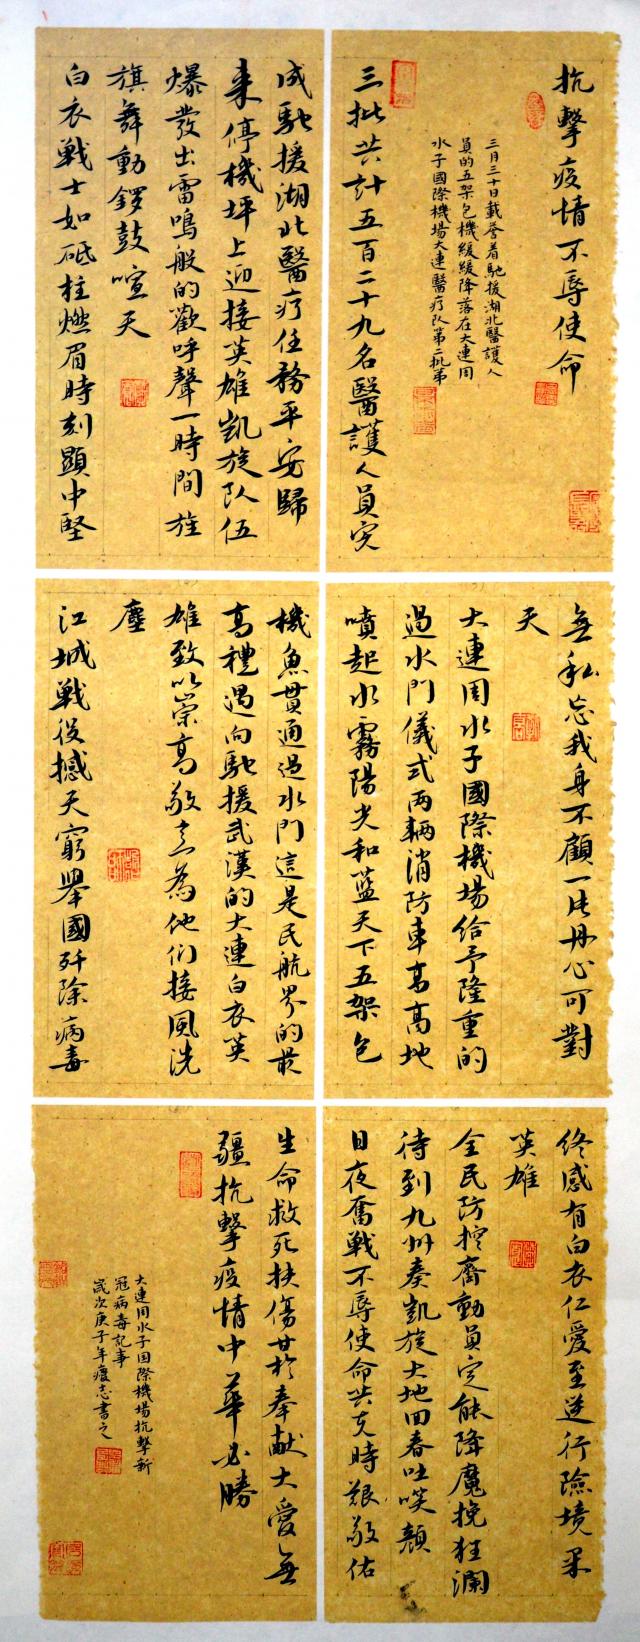 抗擊疫情不辱使命
三月三十日載譽着馳援湖北醫護人
員的五架包機緩緩降落在大連周
水子國際機場大連醫疗队第二批第
三批共计五百二十九名醫護人員完
成馳援湖北醫疗任務平安歸
来停機坪上迎接英雄凱旋队伍
爆發出雷鳴般的歡呼聲一時間旌
旗舞動鑼鼓喧天
白衣戰士如砥柱燃眉時刻顯中堅
無私忘我身不顧一片丹心可對
天
大連周水子國際機場给予隆重的
過水門儀式两輛消防車高高地
噴起水霧陽光和藍天下五架包
機魚貫通過水門這是民航界的最
高禮遇向馳援武漢的大連白衣英
雄致以崇高敬意為他们接風洗
塵
江城戰役撼天窮舉國歼除病毒
终感有白衣仁愛至逆行險境采
英雄
全民防控齊動員定能降魔挽狂瀾
待到九州奏凱旋大地回春吐笑顏
日夜奮戰不辱使命共克時艱敬佑
生命救死扶傷甘於奉献大愛無
疆抗擊疫情中華必勝
大連周水子国際機場抗擊新
冠病毒記事
歲次庚子年志書之